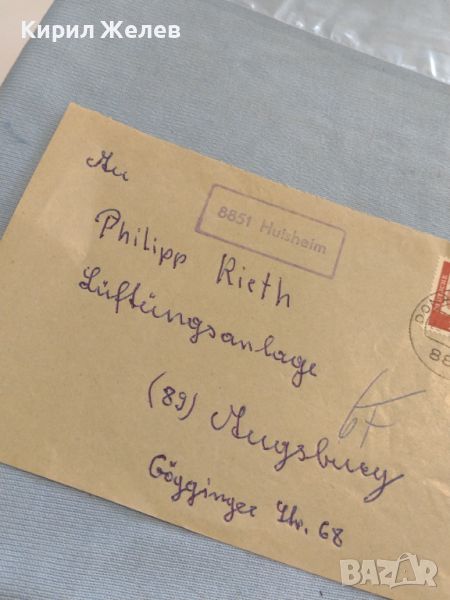 Кирил Желев
An
8851 Huisheim
Philipp Rieth
Lüftungsanlage
(89) Augsburg
Gögginger Str. 68
DON
88
BAZAR